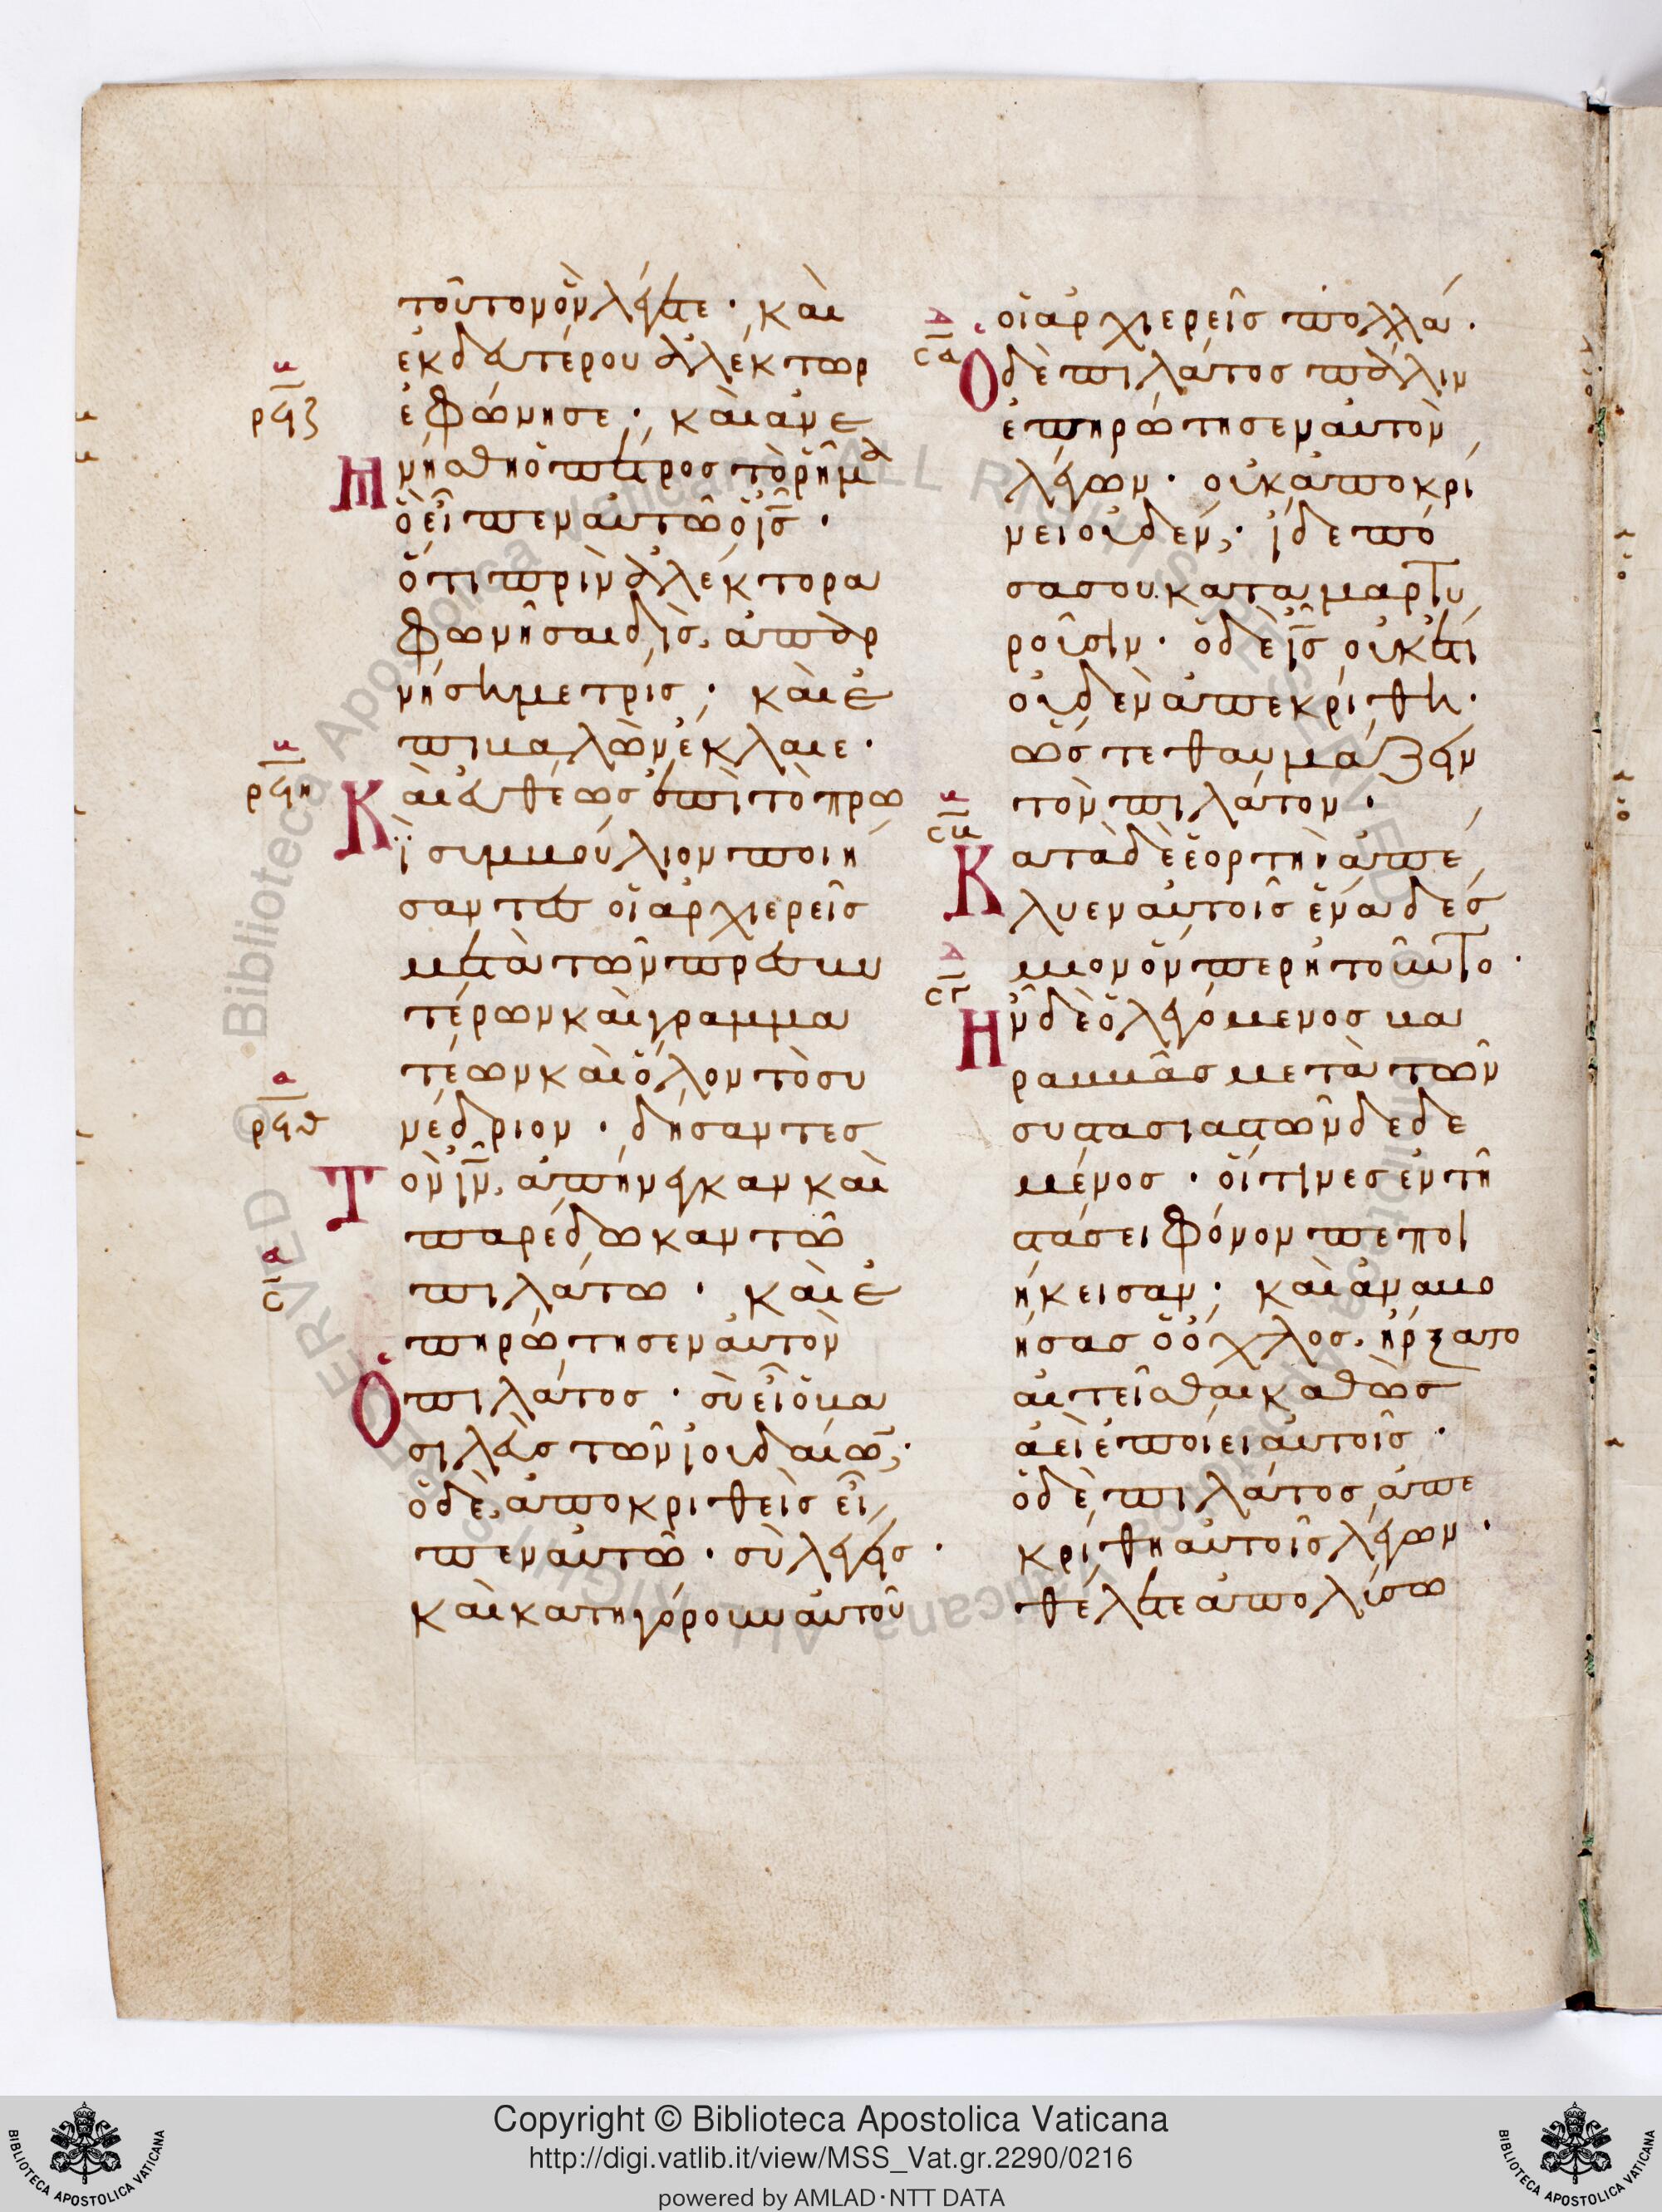 τοῦτον ὃν λέγετε· καὶ
ἐκ δευτέρου ἀλέκτωρ
ρϙζ
ἐφώνησε· καὶ ἀνε
Μνήσθη ὁ πέτρος τὸ ῥῆμα
ὃ εἶπεν αὐτῶ ὁ ῑς̄·
ὅτι πρὶν ἀλέκτορα
φωνῆσαι δὶς, ἀπαρ
νήση με τρίς· καὶ ἐ
πιβαλὼν ἔκλαιε·
ρϙη
Καὶ εὐθέως ἐπὶ τὸ πρω
ῒ συμβούλιον ποιή
σαντες οἱ ἀρχιερεῖς
μετὰ τῶν πρεσβυ
τέρων καὶ γραμμα
τέων καὶ ὅλον τὸ συ
ρϙθ
νέδριον· δήσαντες
Τὸν ῑν̄, ἀπήνεγκαν καὶ
παρέδωκαν τῶ
σ
πιλάτω· καὶ ἐ
πηρώτησεν αὐτὸν
Ὁ πιλάτος· σὺ εἶ ὁ βα
σιλεὺς τῶν ἰουδαίω̄;
ὁ δὲ, ἀποκριθεὶς εἶ
πεν αὐτῶ· σὺ λέγεις·
καὶ κατηγόρουν αὐτοῦ
οἱ ἀρχιερεῖς πολλά·
σα
Ὁ δὲ πιλάτος πάλιν
ἐπηρώτησεν αὐτὸν
λέγων· οὐκ ἀποκρί
νει οὐδέν; ἴδε πό
σα σου καταμαρτυ
ροῦσιν· ὁ δὲ ῑς̄ οὐκέτι
οὐδὲν ἀπεκρίθη·
ὥστε θαυμάζειν
τὸν πιλάτον·
σβ
Κατὰ δὲ ἑορτὴν ἀπέ
λυεν αὐτοῖς ἕνα δέσ
μιον ὅνπερ ἠτοῦντο·
σγ
Ἦν δὲ ὁ λεγόμενος βα
ραββᾶς μετὰ τῶν
συστασιαστῶν δεδε
μένος· οἵτινες ἐν τῆ
στάσει φόνον πεποι
ήκεισαν· καὶ ἀναβο
ήσας ὁ ὄχλος, ἤρξατο
αἰτεῖσθαι καθὼς
ἀεὶ ἐποίει αὐτοῖς·
ὁ δὲ πιλάτος ἀπε
κρίθη αὐτοῖς λέγων·
θέλετε ἀπολύσω
Copyright © Biblioteca Apostolica Vaticana
http://digi.vatlib.it/view/MSS_Vat.gr.2290/0216
powered by AMLAD·NTT DATA
BIBLIOTECA APOSTOLICA VATICANA
BIBLIOTECA APOSTOLICA VATICANA